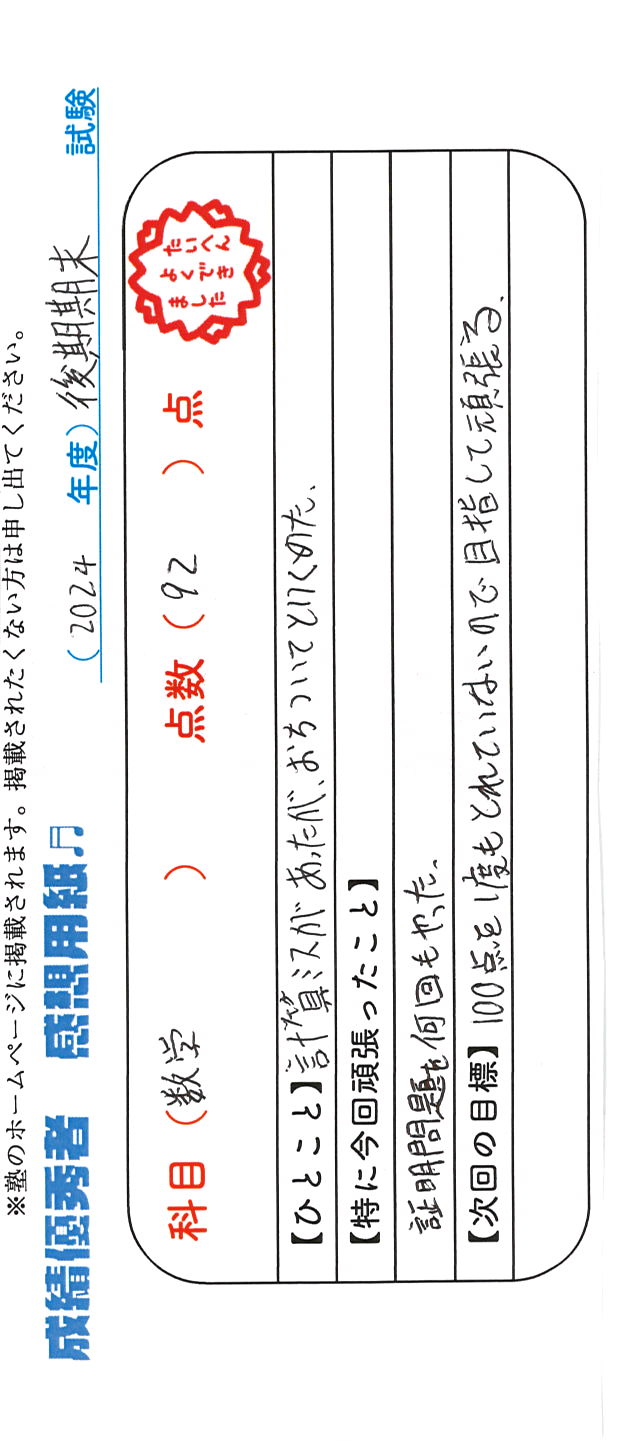 ※塾のホームページに掲載されます。掲載されたくない方は申し出てください。
成績優秀者 感想用紙♬ (2024 年度) 後期期末 試験
科目 (数学) 点数 (92) 点
たいへん
よくでき
ました
【ひとこと】計算ミスがあったが、おちついてとりくめた、
【特に今回頑張ったこと】
証明問題を何回もやった、
【次回の目標】100点を1度もとれていないので目指して頑張る、